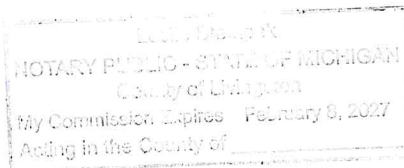 NOTARY PUBLIC - STATE OF MICHIGAN
County of Livingston
My Commission Expires February 8, 2027
Acting in the County of